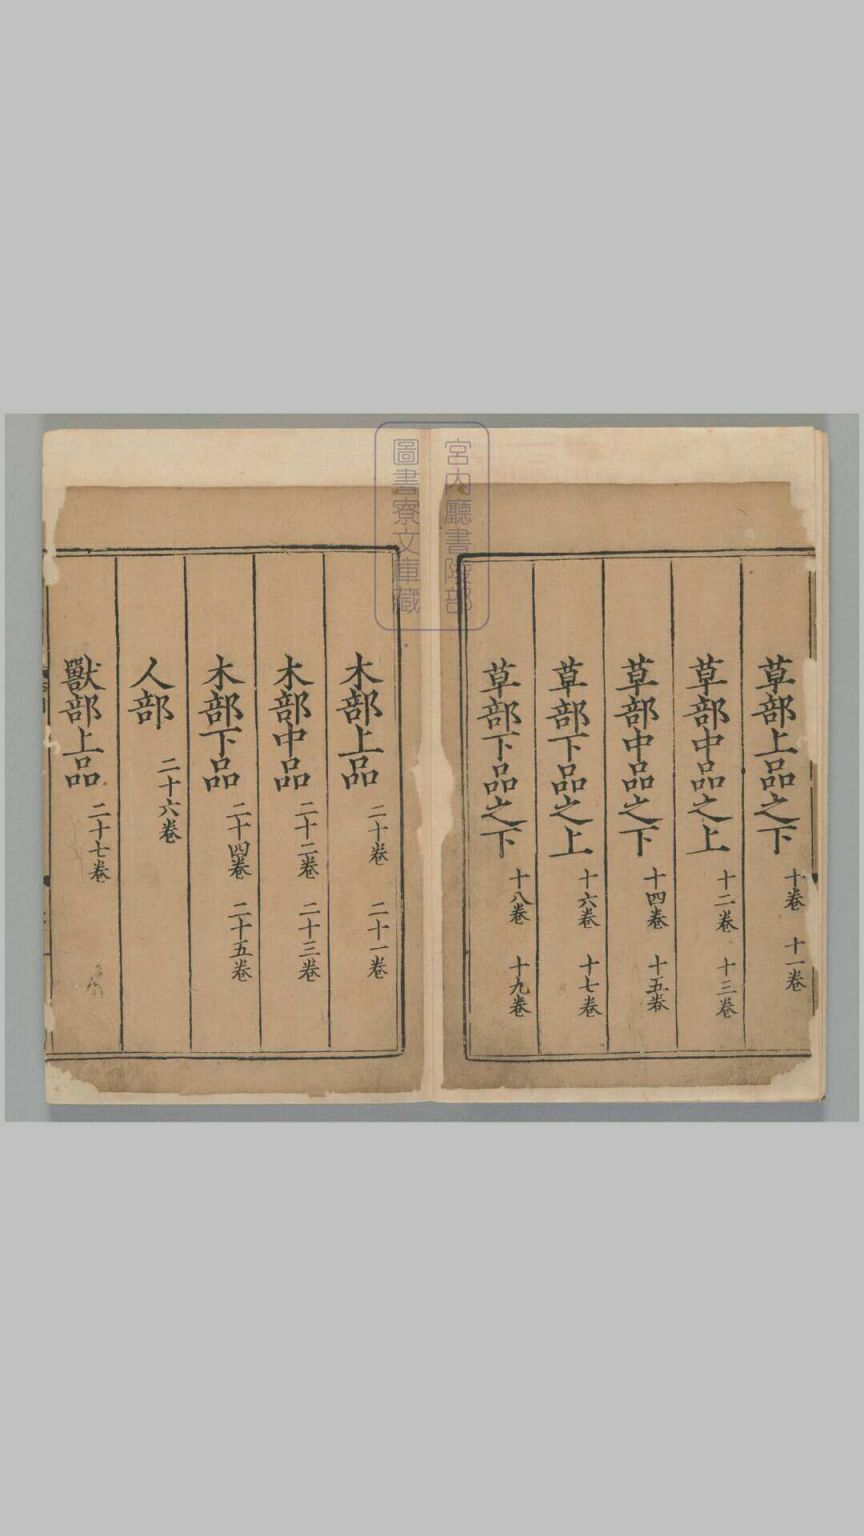 草部上品之下 十卷 十一卷
草部中品之上 十二卷 十三卷
草部中品之下 十四卷 十五卷
草部下品之上 十六卷 十七卷
草部下品之下 十八卷 十九卷
宮内廳書陵部
圖書寮文庫藏
木部上品 二十卷 二十一卷
木部中品 二十二卷 二十三卷
木部下品 二十四卷 二十五卷
人部 二十六卷
獸部上品 二十七卷